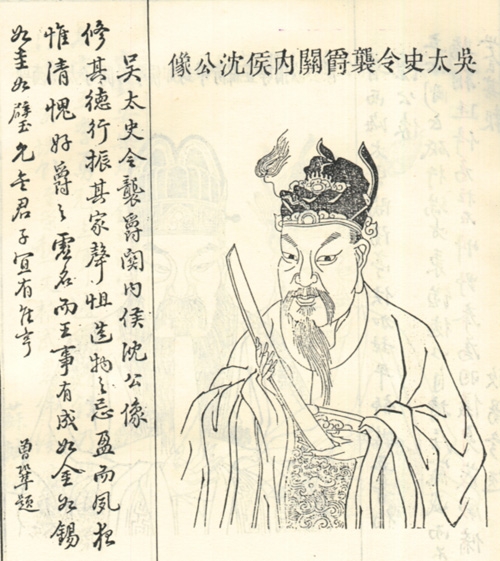 吳太史令襲爵關內侯沈公像
吳太史令襲爵関内侯沈公像
修其德行振其家聲怛造物之忌盈而夙夜
惟清愧好爵之虛名而王事有成如金如錫
如圭如璧允矣君子宜有
曾鞏題